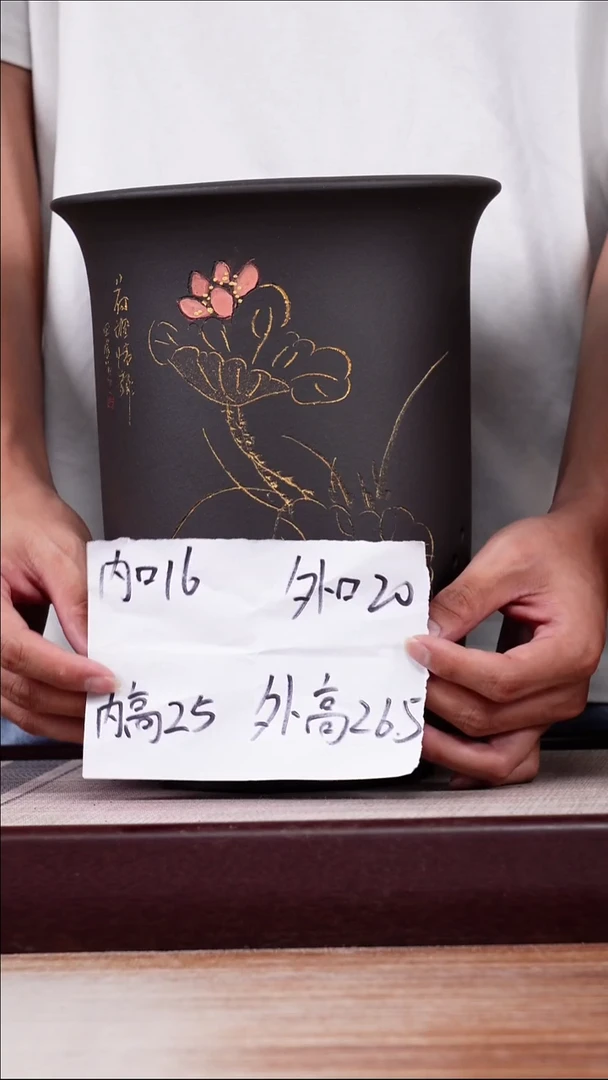 内口16 外口20
内高25 外高26.5